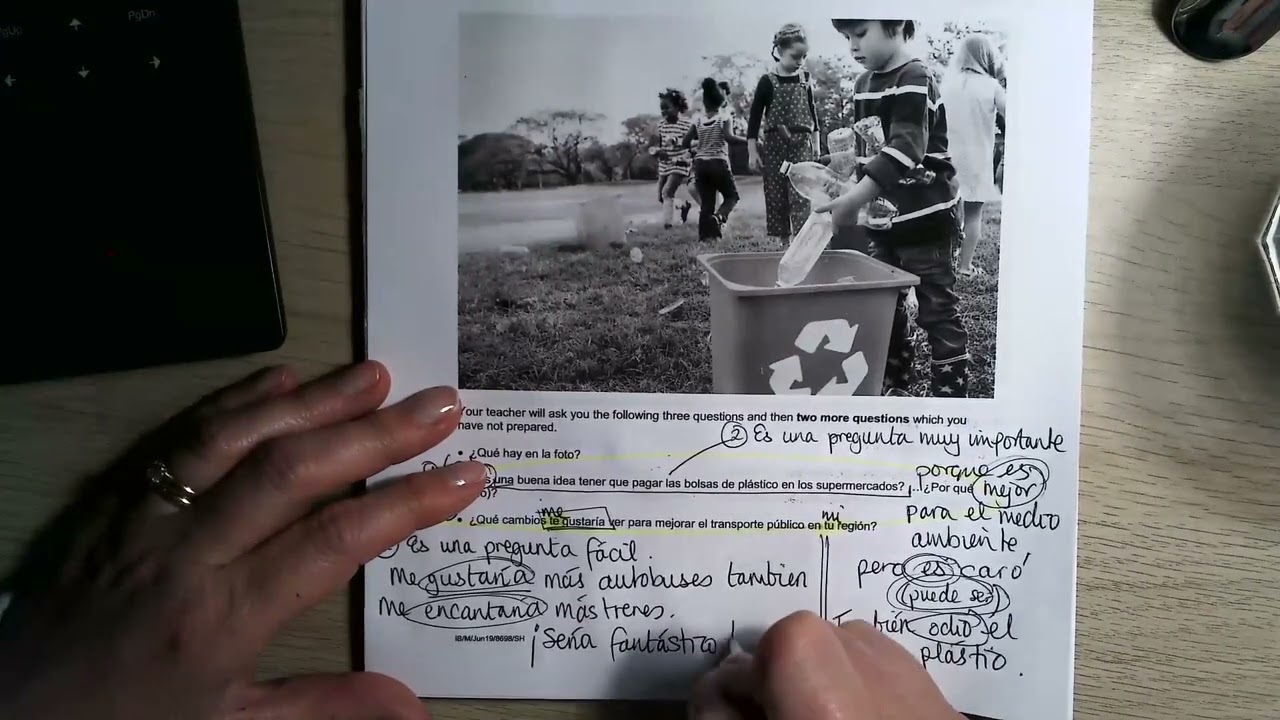 PgUp
PgDn
Your teacher will ask you the following three questions and then two more questions which you
have not prepared.
② Es una pregunta muy importante
porque es
mejor
para el medio
ambiente,
pero es caro
(puede ser)
También odio el
plástio.
• ¿Qué hay en la foto?
una buena idea tener que pagar las bolsas de plástico en los supermercados? ...¿Por qué
no)?
me
mi
• ¿Qué cambios te gustaría ver para mejorar el transporte público en tu región?
Es una pregunta fácil.
Me gustaría más autobuses tambien
me encantaría más trenes.
¡Sería fantástico!
IB/M/Jun19/8698/SH